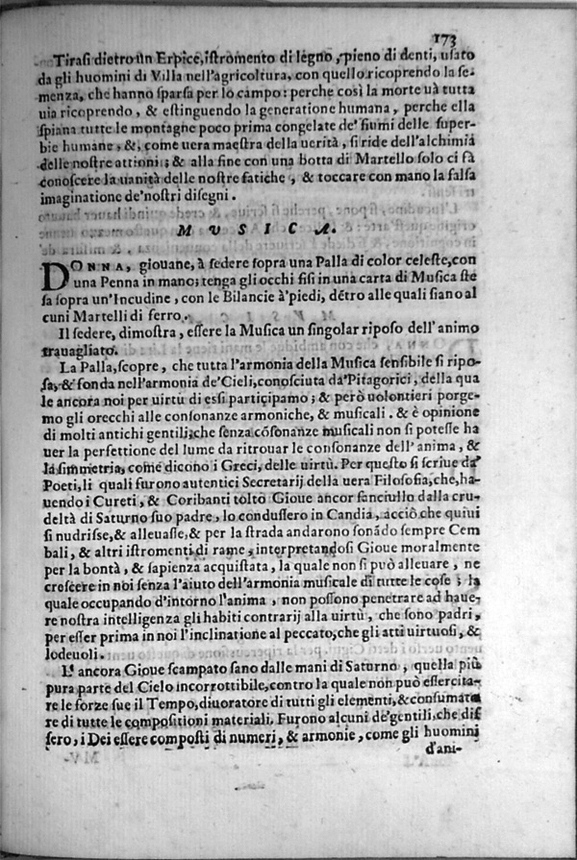 173
Tirasi dietro un Erpice, istromento di legno, pieno di denti, usato
da gli huomini di Villa nell'agricoltura, con quello ricoprendo la se-
menza, che hanno sparsa per lo campo: perche così la morte uà tutta
uia ricoprendo, & estinguendo la generatione humana, perche ella
spiana tutte le montagne poco prima congelate de' fiumi delle super-
bie humane, &, come uera maestra della uerità, si ride dell'alchimia
delle nostre attioni; & alla fine con una botta di Martello solo ci fà
conoscere la uanità delle nostre fatiche, & toccare con mano la falsa
imaginatione de' nostri disegni.
MVSICA.
DONNA, giouane, à sedere sopra una Palla di color celeste, con
una Penna in mano; tenga gli occhi fisi in una carta di Musica ste
sa sopra un'Incudine, con le Bilancie à' piedi, dẽtro alle quali siano al
cuni Martelli di ferro.
Il sedere, dimostra, essere la Musica un singolar riposo dell'animo
trauagliato.
La Palla, scopre, che tutta l'armonia della Musica sensibile si ripo-
sa, & fonda nell'armonia de' Cieli, conosciuta da' Pitagorici, della qua
le ancora noi per uirtù di essi participamo; & però uolontieri porge-
mo gli orecchi alle consonanze armoniche, & musicali. & è opinione
di molti antichi gentili, che senza cõsonanze musicali non si potesse ha
uer la perfettione del lume da ritrouar le consonanze dell'anima, &
la simmetria, come dicono i Greci, delle uirtù. Per questo si scriue da'
Poeti, li quali furono autentici Secretarij della uera Filosofia, che, ha-
uendo i Cureti, & Coribanti tolto Gioue ancor fanciullo dalla cru-
deltà di Saturno suo padre, lo condussero in Candia, acciò che quiui
si nudrisse, & alleuasse, & per la strada andarono sonãdo sempre Cem
bali, & altri istromenti di rame, interpretandosi Gioue moralmente
per la bontà, & sapienza acquistata, la quale non si può alleuare, ne
crescere in noi senza l'aiuto dell'armonia musicale di tutte le cose; la
quale occupando d'intorno l'anima, non possono penetrare ad haue-
re nostra intelligenza gli habiti contrarij alla uirtù, che sono padri,
per esser prima in noi l'inclinatione al peccato, che gli atti uirtuosi, &
lodeuoli.
E' ancora Gioue scampato sano dalle mani di Saturno, quella più
pura parte del Cielo incorrottibile, contro la quale non può essercita-
re le forze sue il Tempo, diuoratore di tutti gli elementi, & consumato
re di tutte le compositioni materiali. Furono alcuni de' gentili, che dis
sero, i Dei essere composti di numeri, & armonie, come gli huomini
d'ani-